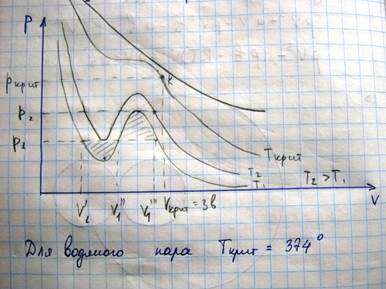 P
Pкрит
K
P₂
P₁
Tкрит
T₂
T₁
T₂ > T₁
V₁' V₁'' V₁''' Vкрит = 3в
V
Для водяного пара Tкрит = 374°